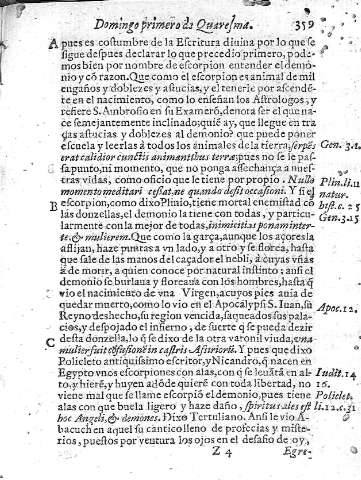 Domingo primero de Quaresma. 359
A pues es costumbre de la Escritura diuina por lo que se
sigue despues declarar lo que precedio primero, pode
mos bien por nombre de escorpion entender el demo
nio y cõ razon. Que como el escorpion es animal de mil
engaños y doblezes y astucias, y el tenerle por ascendẽ
te en el nacimiento, como lo enseñan los Astrologos, y
refiere S. Ambrosio en su Examerõ, denota ser el que na
ce semejantemente inclinado; quiẽ ay, que llegue en tra
ças astucias y doblezes al demonio? que puede poner
escuela y leerlas à todos los animales de la tierra, serpẽs
erat calidior cunctis animantibus terræ, pues no se le pas
sa punto, ni momento, que no ponga assechança a nues
tras vidas, como oficio que le tiene por propio, Nullo
momento meditari cessat, ne quando desit occasioni. Y si el
B escorpion, como dixo Plinio, tiene mortal enemistad cõ
las donzellas, el demonio la tiene con todas, y particu
larmente con la mejor de todas, inimicitias ponam inter
te, & mulierem. Que como la garça, aunque los açores la
aflijan, haze puntas a vn lado, y a otro y se florea, hasta
que sale de las manos del caçador el nebli, à cuyas vñas
à de morir, a quien conoce por natural instinto; ansi el
demonio se burlaua y floreaua con los hombres, hasta q̃
vio el nacimiento de vna Virgen, a cuyos pies auia de
quedar muerto, como lo vio en el Apocalypsi S. Iuan, su
Reyno deshecho, su region vencida, saqueados sus pala
cios, y despojado el infierno, de suerte q̃ se pueda dezir
desta donzella, lo q̃ se dixo de la otra varonil viuda, vna
C mulier fecit confusionẽ in castris Assiriorũ. Y pues que dixo
Policleto antiquissimo escritor, y Nicandro, q̃ nacen en
Egypto vnos escorpiones con alas, con q̃ se leuãtã en al
to, y hierẽ, y huyen adõde quierẽ con toda libertad, no
viene mal que se llame escorpiõ el demonio, pues tiene
alas con que buela ligero y haze daño, spiritus ales est
hoc Angeli, & demones. Dixo Tertuliano. Ansi le vio A-
bacuch en aquel su cantico lleno de profecias y miste-
rios, puestos por ventura los ojos en el desafio de oy,
Z 4 Egre-
Gen. 3.1.
Plin. li. 11
natur.
hist. c. 25
Gen. 3.15.
Apoc. 12.
Iudit. 14
16.
Policlet.
li. 12. c. 31